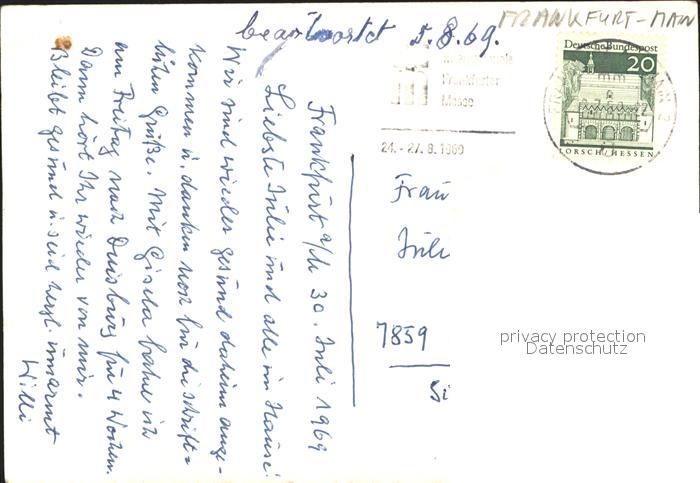 FRANKFURT-MAIN
beantwortet 5.8.69.
Frankfurt a/M 30. Juli 1969
Liebste Julie und alle im Hause!
Wir sind wieder gesund daheim ange-
kommen u. danken noch für die schrift-
lichen Grüße. Mit Gisela fahre ich
am Freitag nach Duisburg für 4 Wochen.
Dann hört Ihr wieder von mir.
Bleibt gesund u. seid herzl. umarmt
Willi
Frankfurter
Messe
24.-27.8.1969
Deutsche Bundespost
20
LORSCH/HESSEN
Frau
Juli
7859
privacy protection
Datenschutz